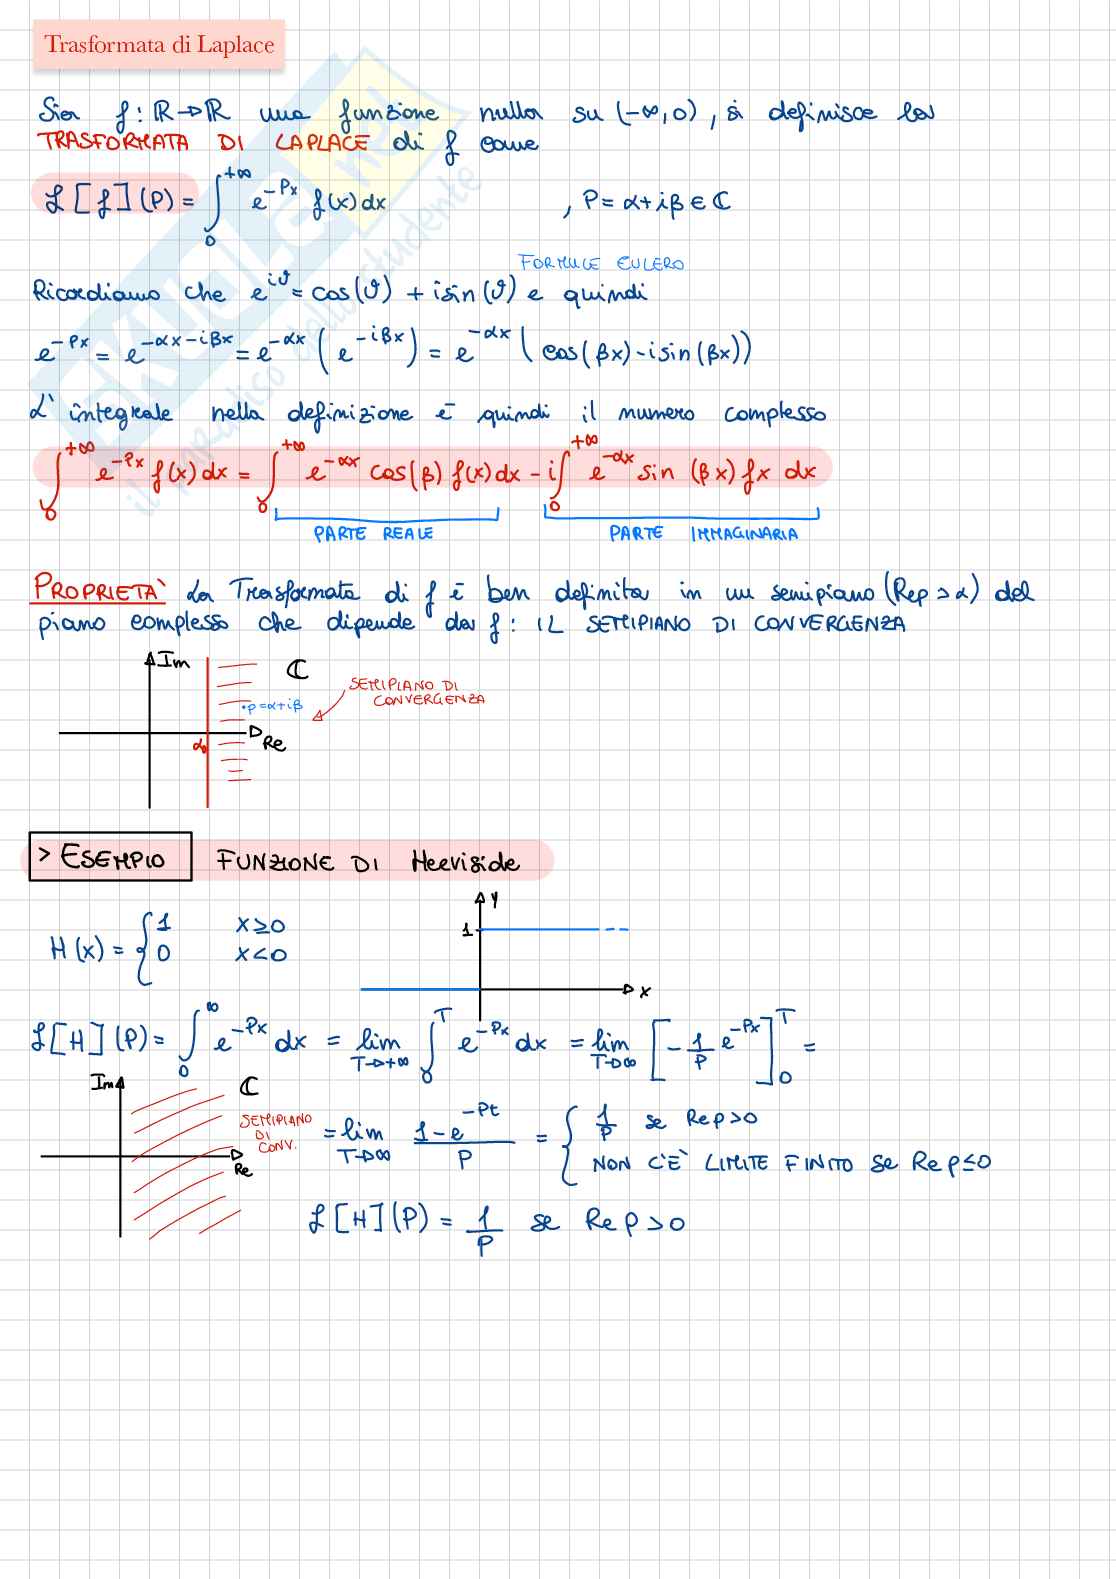 Trasformata di Laplace
Sia f: ℝ→ℝ una funzione nulla su (-∞,0), si definisce la
TRASFORMATA DI LAPLACE di f come
ℒ[f](P) = ∫₀^{+∞} e^{-Px} f(x) dx , P = α+iβ ∈ ℂ
FORMULE EULERO
Ricordiamo che e^{iϑ} = cos(ϑ) + i sin(ϑ) e quindi
e^{-Px} = e^{-αx-iβx} = e^{-αx} (e^{-iβx}) = e^{-αx} (cos(βx) - i sin(βx))
L' integrale nella definizione è quindi il numero complesso
∫₀^{+∞} e^{-Px} f(x) dx = ∫₀^{+∞} e^{-αx} cos(β) f(x) dx - i∫₀^{+∞} e^{-αx} sin (βx) fx dx
PARTE REALE PARTE IMMAGINARIA
PROPRIETÀ La Trasformata di f è ben definita in un semipiano (Rep > α) del
piano complesso che dipende da f: IL SEMIPIANO DI CONVERGENZA
Im ℂ
SEMIPIANO DI
CONVERGENZA
•p=α+iβ
α₀ Re
> ESEMPIO FUNZIONE DI Heeviside
H(x) = { 1 x≥0
0 x<0
y
1
x
ℒ[H](P) = ∫₀^{∞} e^{-Px} dx = lim_{T→+∞} ∫₀^{T} e^{-Px} dx = lim_{T→∞} [-1/P e^{-Px}]₀^{T} =
Im ℂ
SEMIPIANO
DI
CONV.
Re
= lim_{T→∞} (1-e^{-Pt})/P = { 1/P se Rep>0
NON C'È LIMITE FINITO se Rep≤0
ℒ[H](P) = 1/P se Rep>0
SKUOLA.net
il paradiso dello studente